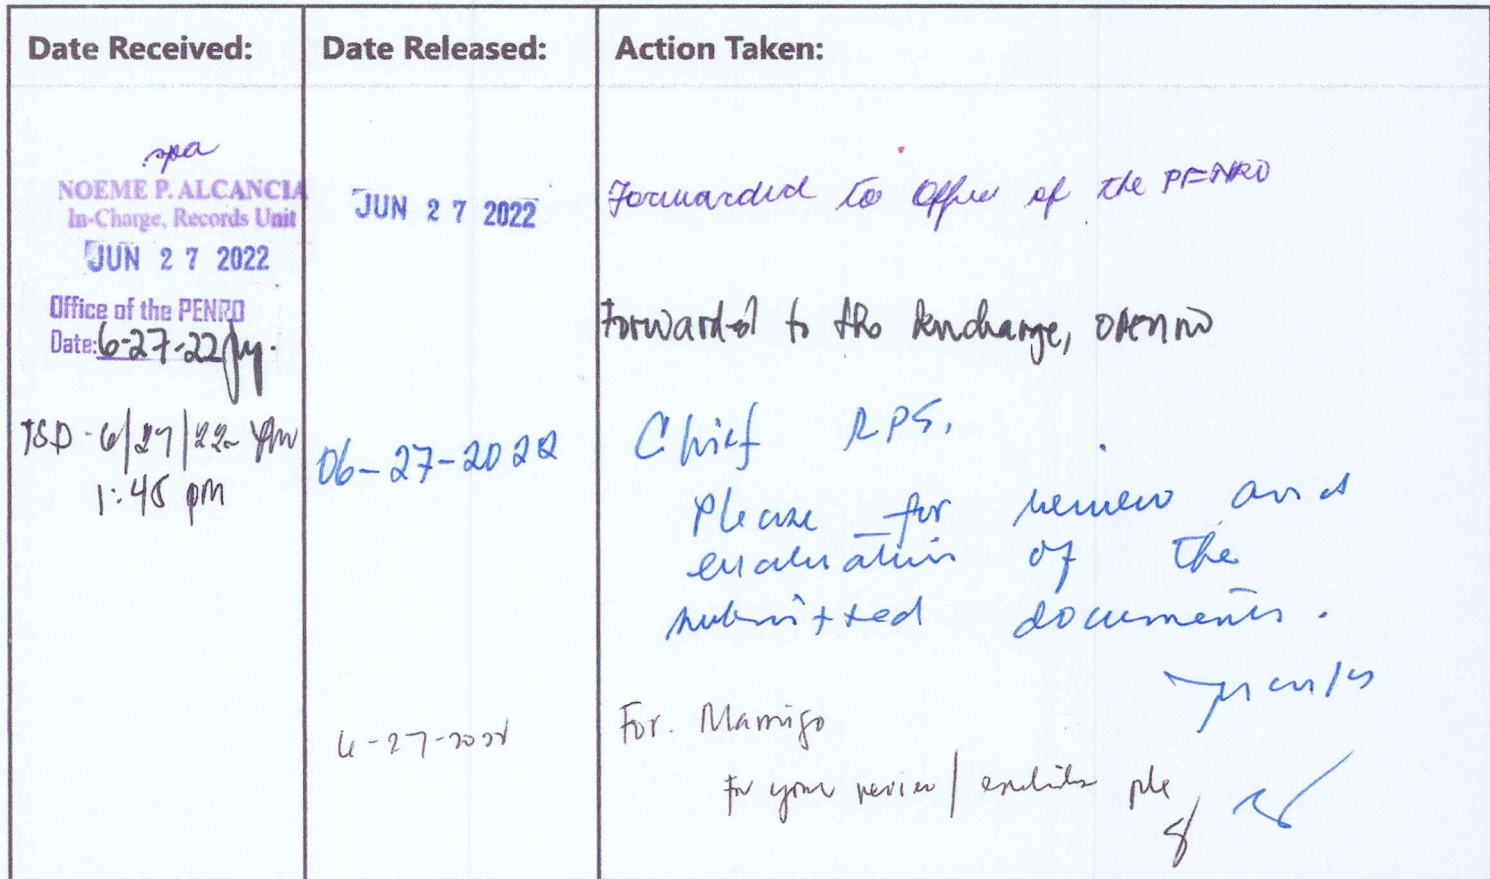 Date Received: Date Released: Action Taken:
spa
NOEME P. ALCANCIA
In-Charge, Records Unit
JUN 27 2022
JUN 27 2022
Forwarded to Office of the PENRO
Office of the PENRO
Date: 6-27-22
Forwarded to the Incharge, OPENRO
TSD - 6/27/22
1:45 pm
06-27-2022
Chief RPS,
Please for review and
evaluation of the
submitted documents.
Thanks
6-27-2022
For. Mamigo
For your review / pls